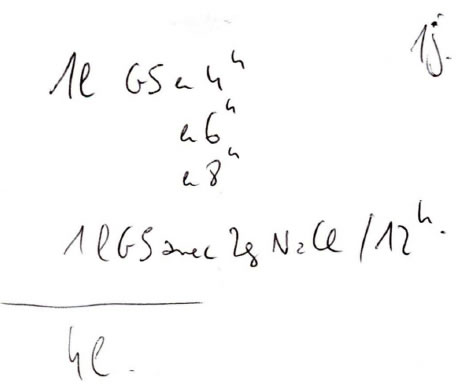 1j.
1l GS en 4h
en 6h
en 8h
1l GS avec 2g NaCl /12h.
4l.